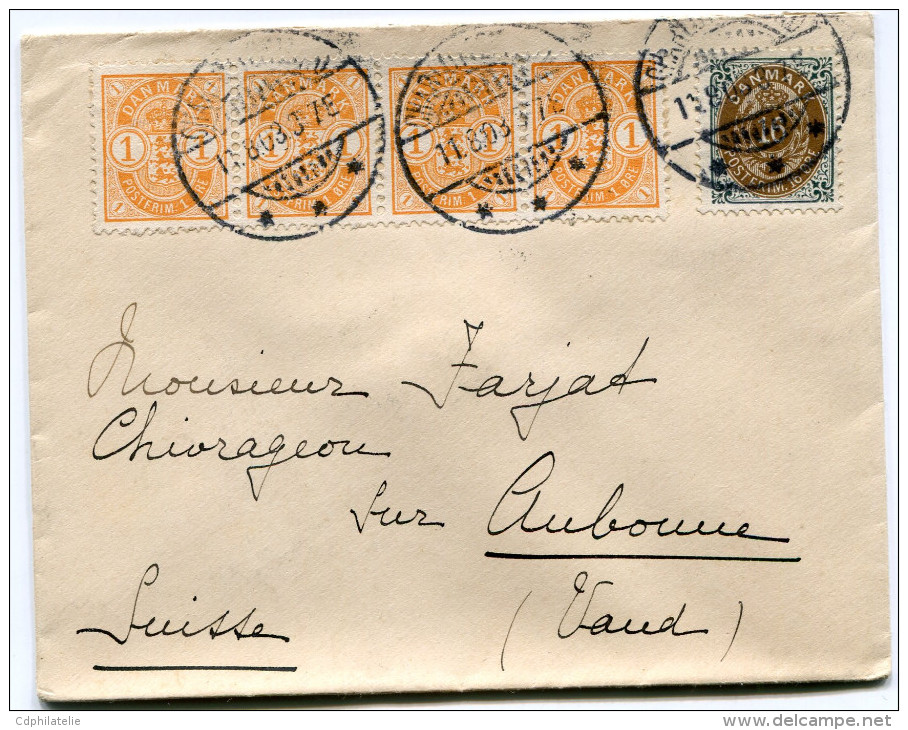 DANMARK DANMARK DANMARK DANMARK DANMARK
1 1 1 1 16
POSTFRIM. 1 ØRE POSTFRIM. 1 ØRE POSTFRIM. 1 ØRE POSTFRIM. 1 ØRE POSTFRIM. 16 ØRE
11.8.03.3-7E
Monsieur Farjat
Chivrageon
sur Aubonne
Suisse (Vaud)
Cdphilatelie
www.delcampe.net